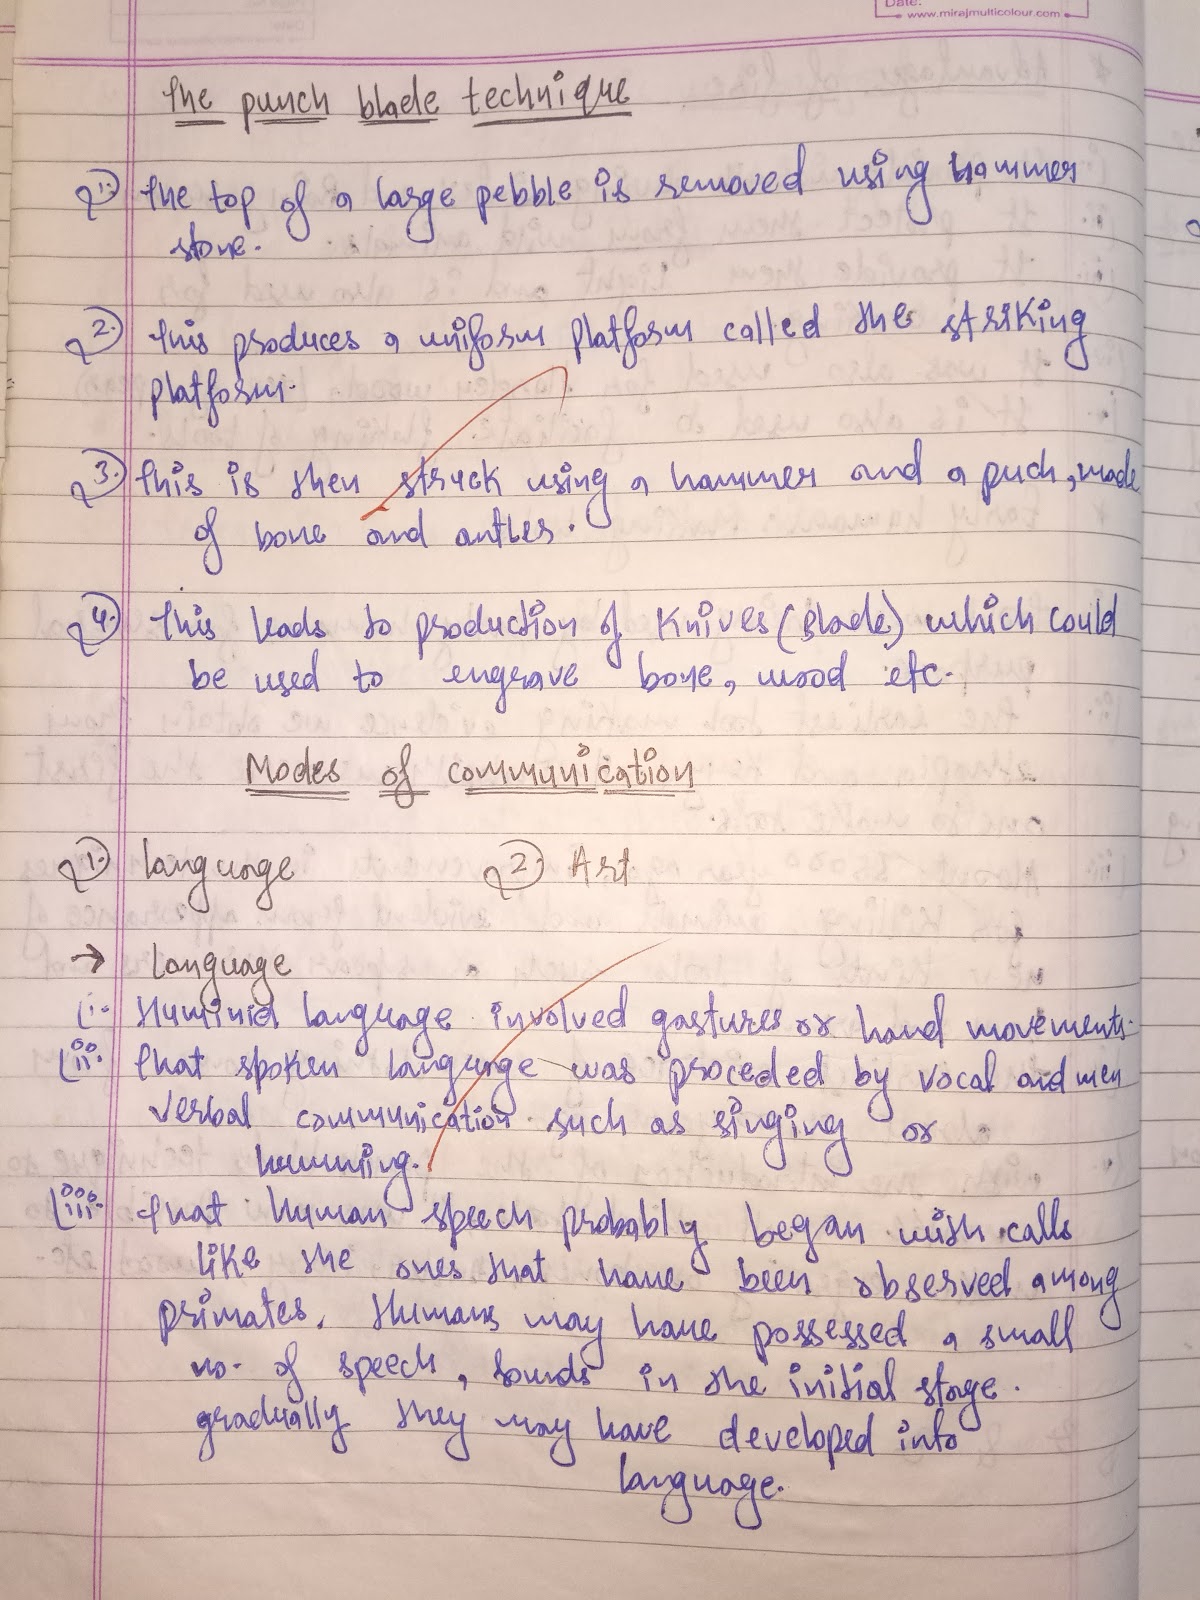 Date:
www.mirajmulticolour.com
The punch blade technique
1. The top of a large pebble is removed using hammer
stone.
2. This produces a uniform platform called the striking
platform.
3. This is then struck using a hammer and a puch, made
of bone and antles.
4. This leads to production of Knives (Blade) which could
be used to engrave bone, wood etc.
Modes of communication
1. language 2. Art
→ Language
i. Huminid language involved gastures or hand movements.
ii. that spoken language was proceded by vocal
verbal communication such as singing or
humming.
iii. that human speech probably began with calls
like the ones that have been observed among
primates. Humans may have possessed a small
no. of speech, sounds in the initial stage.
gradually they may have developed into
language.